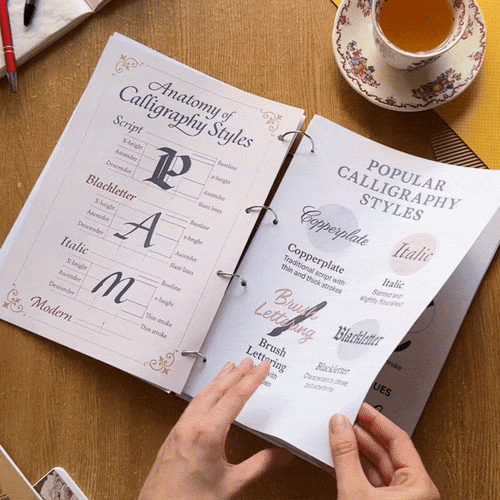 Anatomy of
Calligraphy Styles
Script
X-height
Ascender
Descender
P
Baseline
x-height
Ascender
Slant lines
Blackletter
X-height
Ascender
Descender
A
Baseline
x-height
Descender
Slant lines
Italic
X-height
Ascender
Descender
m
Baseline
x-height
Thin stroke
Thin stroke
Modern
POPULAR
CALLIGRAPHY
STYLES
Copperplate
Copperplate
Traditional script with
thin and thick strokes
Italic
Italic
Slanted and
slightly flourished
Brush
Lettering
Brush
Lettering
Blackletter
Blackletter
UES
stroke.